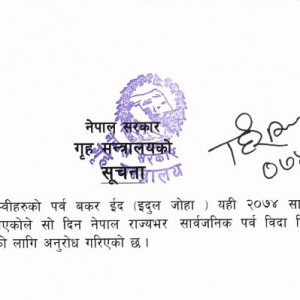 नेपाल सरकार
गृह मन्त्रालयको
सूचना
०७४
पर्व बकर ईद (इदुल जोहा ) यही २०७४ सा
एकोले सो दिन नेपाल राज्यभर सार्वजनिक पर्व विदा
को लागि अनुरोध गरिएको छ ।